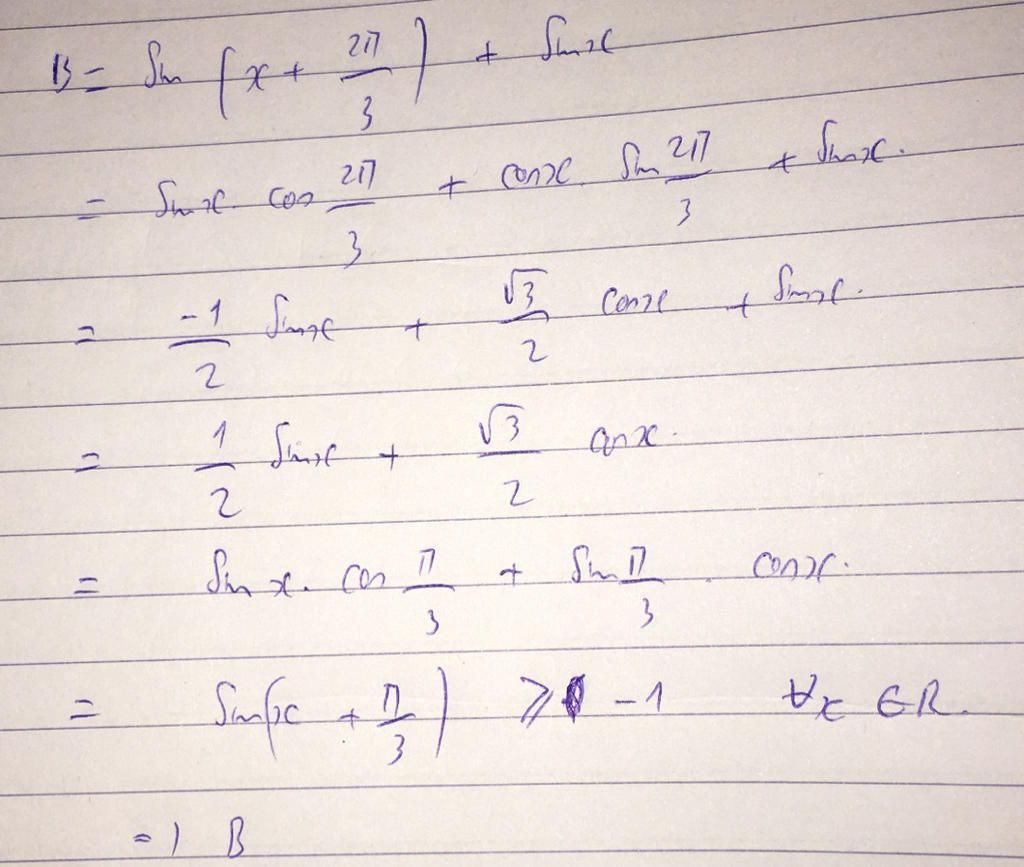 B = Sin (x + 2π/3) + Sinx
= Sinx. cos 2π/3 + cosx. Sin 2π/3 + Sinx.
= -1/2 Sinx + √3/2 cosx + Sinx.
= 1/2 Sinx + √3/2 cosx.
= Sin x. cos π/3 + Sin π/3 . cosx.
= Sin(x + π/3) ⩾ -1 ∀x ∈ R.
=) B